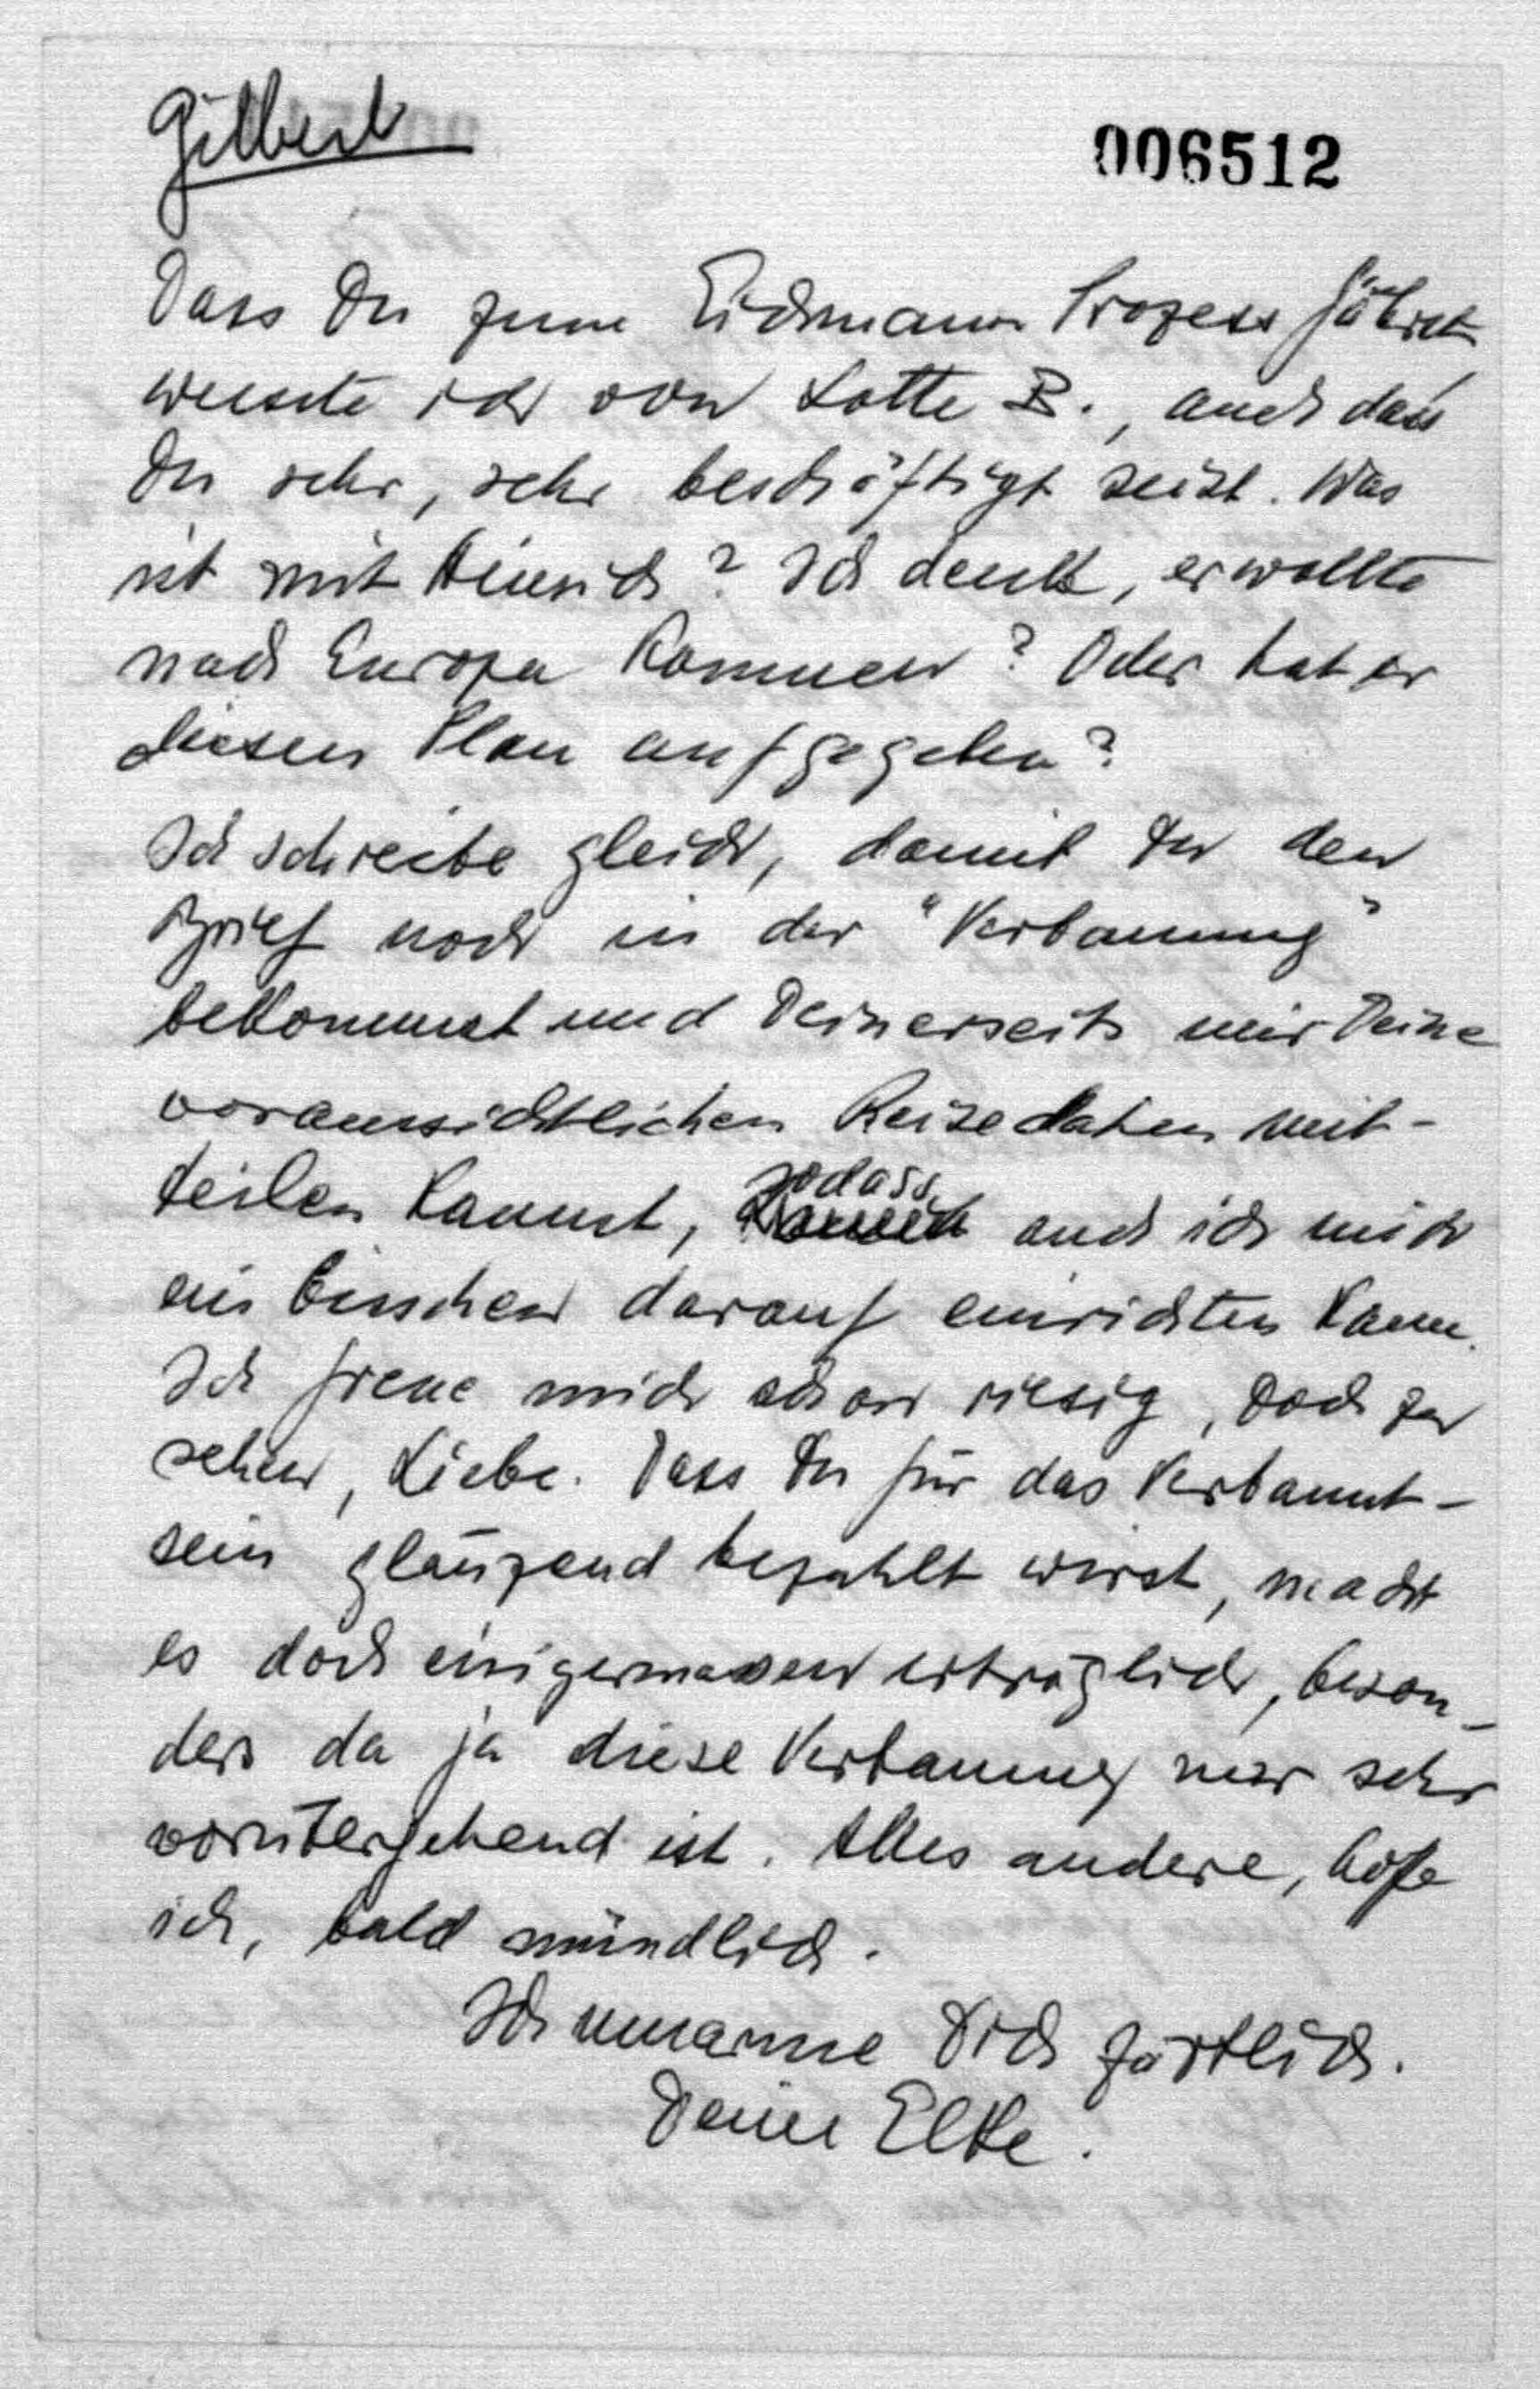 Gilbert
006512
Dass Du zum Eichmann Prozess fährst,
wusste ich von Lotte B., auch dass
Du sehr, sehr beschäftigt seist. Was
ist mit Heinrich? Ich denke, er wollte
nach Europa kommen? Oder hat er
diesen Plan aufgegeben?
Ich schreibe gleich, damit Du den
Brief noch in der "Verbannung"
bekommst und Deinerseits mir Deine
voraussichtlichen Reisedaten mit-
teilen kannst, sodass auch ich mich
ein bisschen darauf einrichten kann.
Ich freue mich schon riesig, Dich zu
sehen, Liebe. Dass Du für das Verbannt-
sein glänzend bezahlt wirst, macht
es doch einigermassen erträglich, beson-
ders da ja diese Verbannung nur sehr
vorübergehend ist. Alles andere, hoffe
ich, bald mündlich.
Ich umarme Dich zärtlich.
Deine Elke.